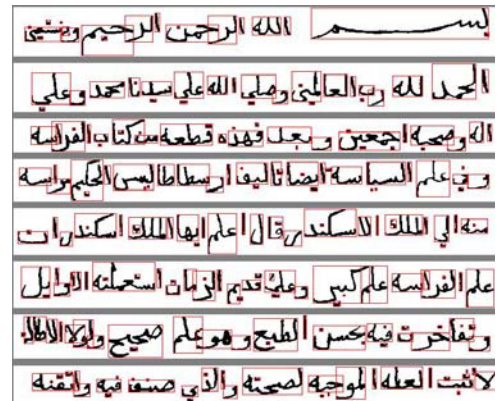 بسم الله الرحمن الرحيم وبه نستعين
الحمد لله رب العالمين وصلي الله علي سيدنا محمد وعلي
اله وصحبه اجمعين وبعد فهذه قطعه من كتاب الفراسه
وفي علم السياسه ايضا تاليف ارسطاطاليس الحكيم مراسه
منه الي الملك الاسكندر قال اعلم ايها الملك اسكندر ان
علم الفراسه علم كبير وعلم قديم الزمان استعملته الاوايل
وتفاخرت فيه بحسن الطبع وهو علم صحيح ولولا
لاثبت العله الموجبه لصحته والذي صنف فيه واتقنه